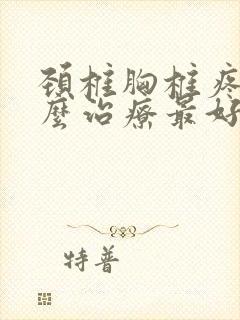 頚椎胸椎疼
麼治療最好
特普